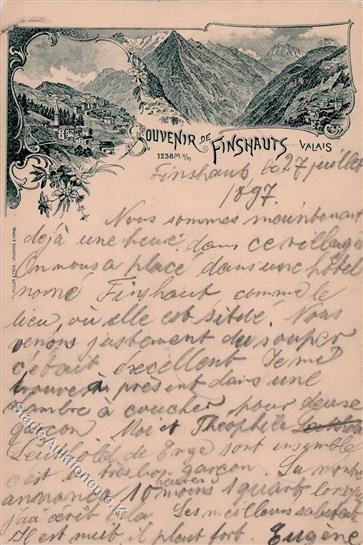 SOUVENIR DE FINSHAUTS VALAIS
1238 M s/m
Finshaut le 27 juillet
1897.
Nous sommes maintenant
déjà une heure dans ce village
On nous a placé dans une hôtel
nomé Finshaut comme le
lieu, où elle est sitsde. Nous
venons justement du souper
c'était excellent Je me
trouve à présent dans une
chambre à coucher pour deuse
garcon. Moi et Théophile
de Enge sont ensemble
c'est un tres bon garçon. La montre
10 heures moins 1 quart lorsque
j'ai écrit cela. Les meilleurs salutat
Il est nuit il pleut fort. Eugène